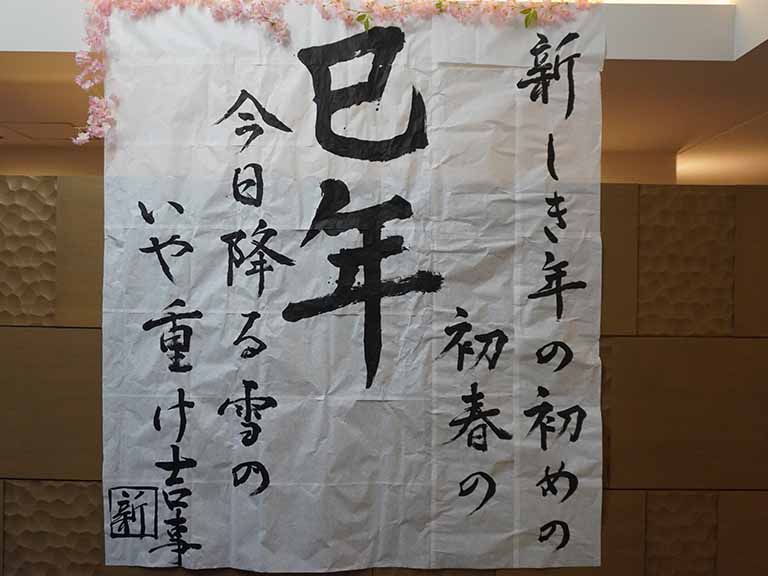 新しき年の初めの
初春の
巳年
今日降る雪の
いや重け吉事
新